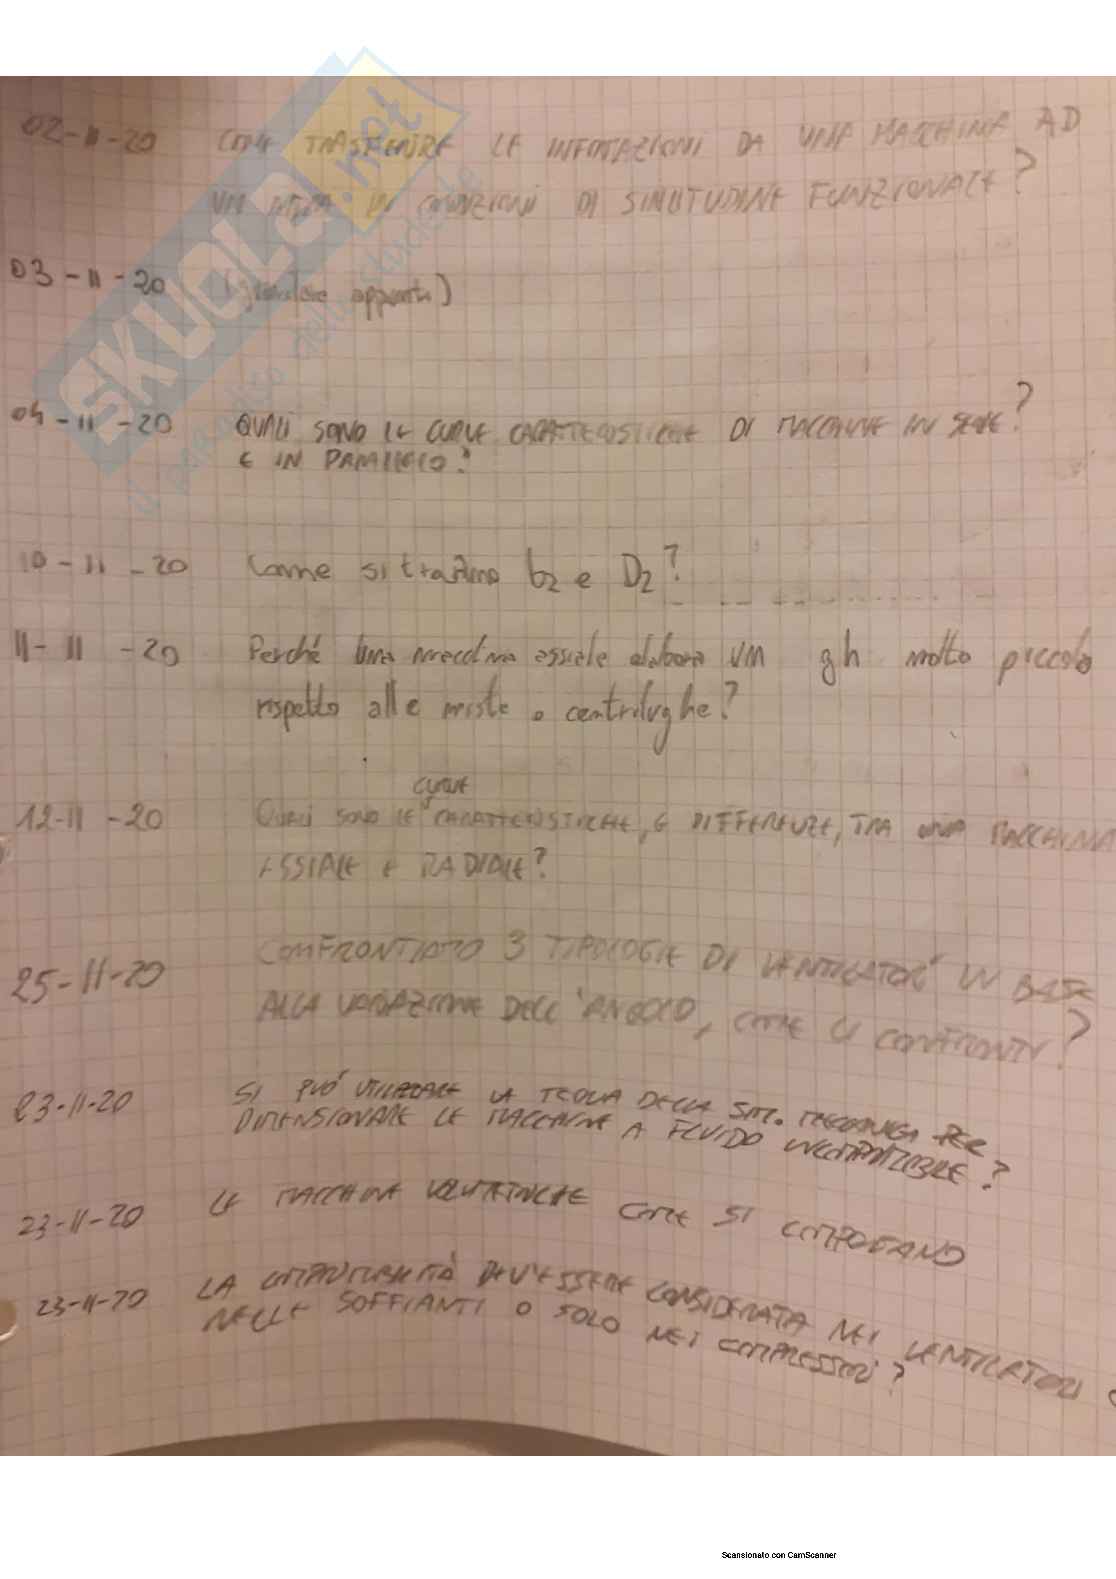 02-11-20 COME TRASFERIRE LE INFORMAZIONI DA UNA MACCHINA AD
UN' ALTRA IN CONDIZIONI DI SIMILITUDINE FUNZIONALE?
03-11-20 (guardare appunti)
04-11-20 QUALI SONO LE CURVE CARATTERISTICHE DI MACCHINE IN SERIE?
E IN PARALLELO?
10-11-20 Come si trovano b2 e D2?
11-11-20 Perché una macchina assiale elabora un gh molto piccolo
rispetto alle miste o centrifughe?
curve
12-11-20 QUALI SONO LE CARATTERISTICHE, E DIFFERENZE, TRA UNA MACCHINA
ASSIALE E RADIALE?
25-11-20 CONFRONTIAMO 3 TIPOLOGIE DI VENTILATORI IN BASE
ALLA VARIAZIONE DELL'ANGOLO, COME LI CONFRONTI?
23-11-20 SI PUÓ UTILIZZARE LA TEORIA DELLA SIM. MECCANICA PER
DIMENSIONARE LE MACCHINE A FLUIDO INCOMPRIMIBILE?
23-11-20 LE MACCHINE VOLUMETRICHE COME SI COMPORTANO
23-11-20 LA COMPRIMIBILITÀ DEV'ESSERE CONSIDERATA NEI VENTILATORI
NELLE SOFFIANTI O SOLO NEI COMPRESSORI?
SKUOLA.net
il paradiso dello studente
Scansionato con CamScanner